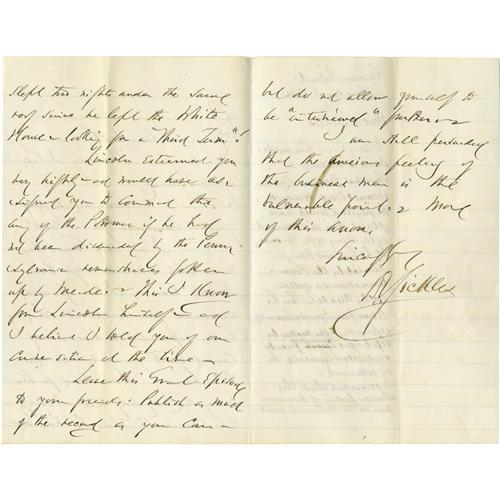 slept two nights under the same
roof since he left the White
House & looking for a "Third Term"!
Lincoln esteemed you
very highly – and would have as-
signed you to command the
army of the Potomac if he had
not been dissuaded by the Penn-
sylvania remonstrances gotten
up by Meade & This I know
from Lincoln himself – and
I believe I told you of our
conversation at the time –
Leave this Grant Episode
to your friends. Publish as much
of the record as you can –
but do not allow yourself to
be "interviewed" further &
I am still persuaded
that the anxious feeling of
the business men is the
vulnerable point. & More
of this anon.
Sincerely
D Sickles